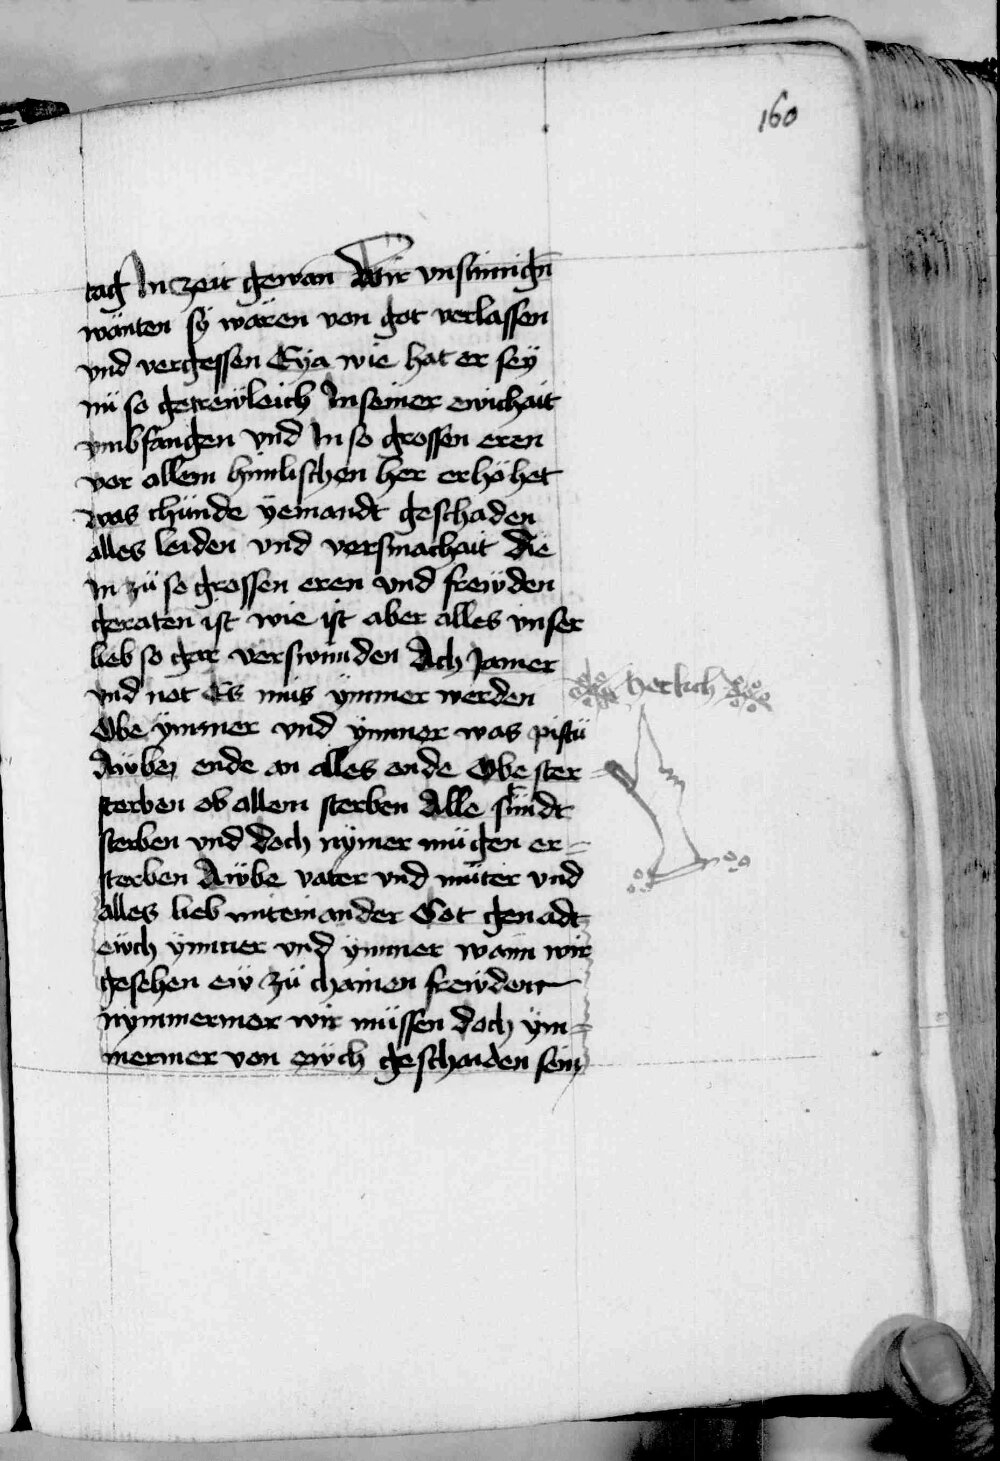 160
tag In zeit gewan̄ Wir vnsinnign̄
wänten sÿ wären von got verlassen
vnd vergessen Eya wie hat er seÿ
nü so getrewleich In seiner ewichait
vmbfangen vnd In so grossen eren
vor allem himlischen her erhöhet
was chünde yemandt geschaden
alles leiden vnd versmachait die
In zü so grossen eren vnd frewden
geraten ist wie ist aber alles vnser
lieb so gar verswunden Ach Jamer
vnd not Es mus ÿmmer werden
herlich
Obe ÿmmer vnd ÿmmer was pistü
Awbe ende an alles ende Obe ster=
sterben ob allem sterben Alle stündt
sterben vnd doch nÿmer mügen er=
sterben Awbe vater vnd müter vnd
alles lieb miteinander Got genadt
ewch ÿmmer vnd ÿmmer wann wir
gesehen ew zü chainen frewden
nymmermer wir müssen doch ÿm=
mermer von ewch geschaiden sein